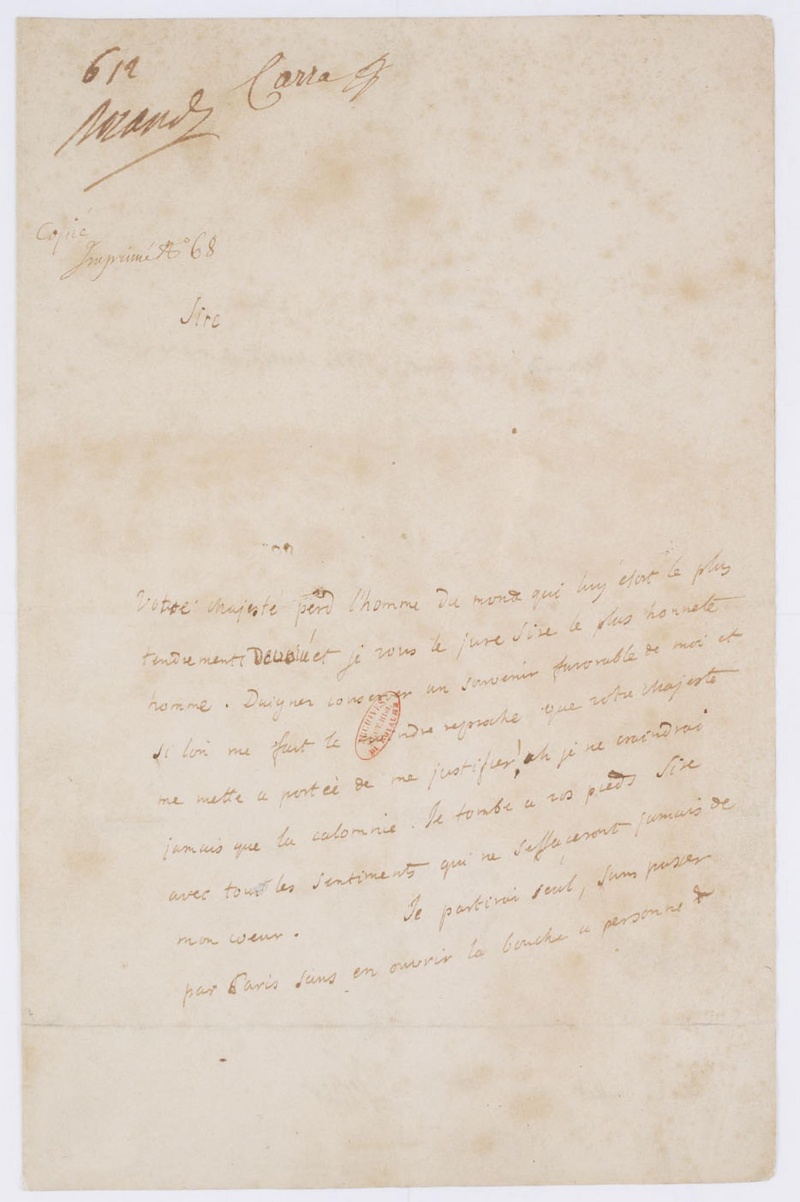 612
Carra
Copié
Imprimé No 68
Sire
Votre Majesté perd l'homme du monde qui luy étoit le plus
tendrement Devoué et je vous le jure Sire le plus honnete
homme. Daignez conserver un souvenir favorable de moi et
si l'on me fait le moindre reproche que votre Majesté
me mette a portée de me justifier! ah je ne craindrai
jamais que la calomnie. Je tombe a vos pieds Sire
avec tous les sentiments qui ne s'effaceront jamais de
mon coeur. Je partirai seul, sans passer
par Paris sans en ouvrir la bouche a personne &